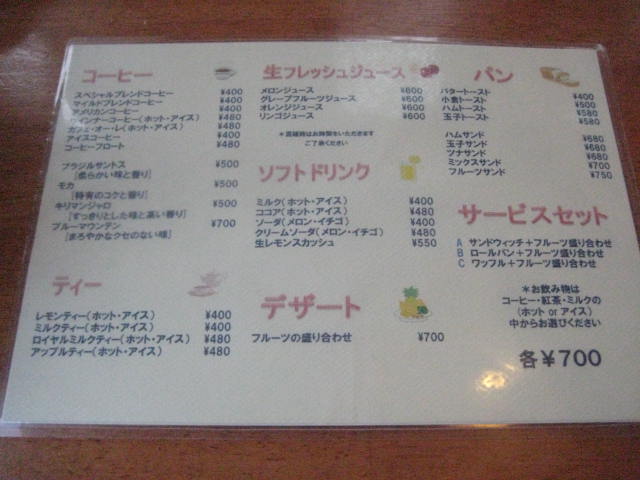 コーヒー
スペシャルブレンドコーヒー ¥400
マイルドブレンドコーヒー ¥400
アメリカンコーヒー ¥400
ウインナーコーヒー(ホット・アイス) ¥480
カフェ・オ・レ(ホット・アイス) ¥480
アイスコーヒー ¥400
コーヒーフロート ¥480
ブラジルサントス ¥500
[柔らかい味と香り]
モカ ¥500
[特有のコクと香り]
キリマンジャロ ¥500
[すっきりとした味と高い香り]
ブルーマウンテン ¥700
[まろやかなクセのない味]
ティー
レモンティー(ホット・アイス) ¥400
ミルクティー(ホット・アイス) ¥400
ロイヤルミルクティー(ホット・アイス) ¥480
アップルティー(ホット・アイス) ¥480
生フレッシュジュース
メロンジュース ¥600
グレープフルーツジュース ¥600
オレンジジュース ¥600
リンゴジュース ¥600
*混雑時はお時間をいただきます
ご了承ください
ソフトドリンク
ミルク(ホット・アイス) ¥400
ココア(ホット・アイス) ¥480
ソーダ(メロン・イチゴ) ¥400
クリームソーダ(メロン・イチゴ) ¥480
生レモンスカッシュ ¥550
デザート
フルーツの盛り合わせ ¥700
パン
バタートースト ¥400
小倉トースト ¥500
ハムトースト ¥580
玉子トースト ¥580
ハムサンド ¥680
玉子サンド ¥680
ツナサンド ¥680
ミックスサンド ¥700
フルーツサンド ¥750
サービスセット
A サンドウィッチ+フルーツ盛り合わせ
B ロールパン+フルーツ盛り合わせ
C ワッフル+フルーツ盛り合わせ
*お飲み物は
コーヒー・紅茶・ミルクの
(ホット or アイス)
中からお選びください
各¥700